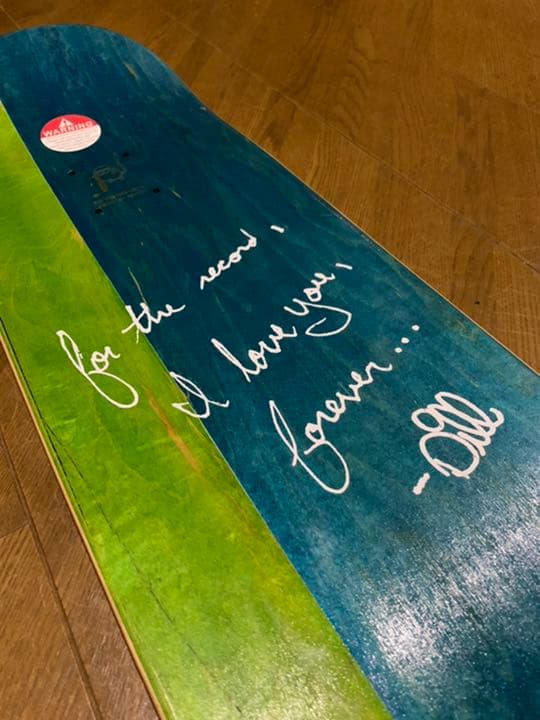 WARNING
for the record,
I love you,
forever...
-Dill